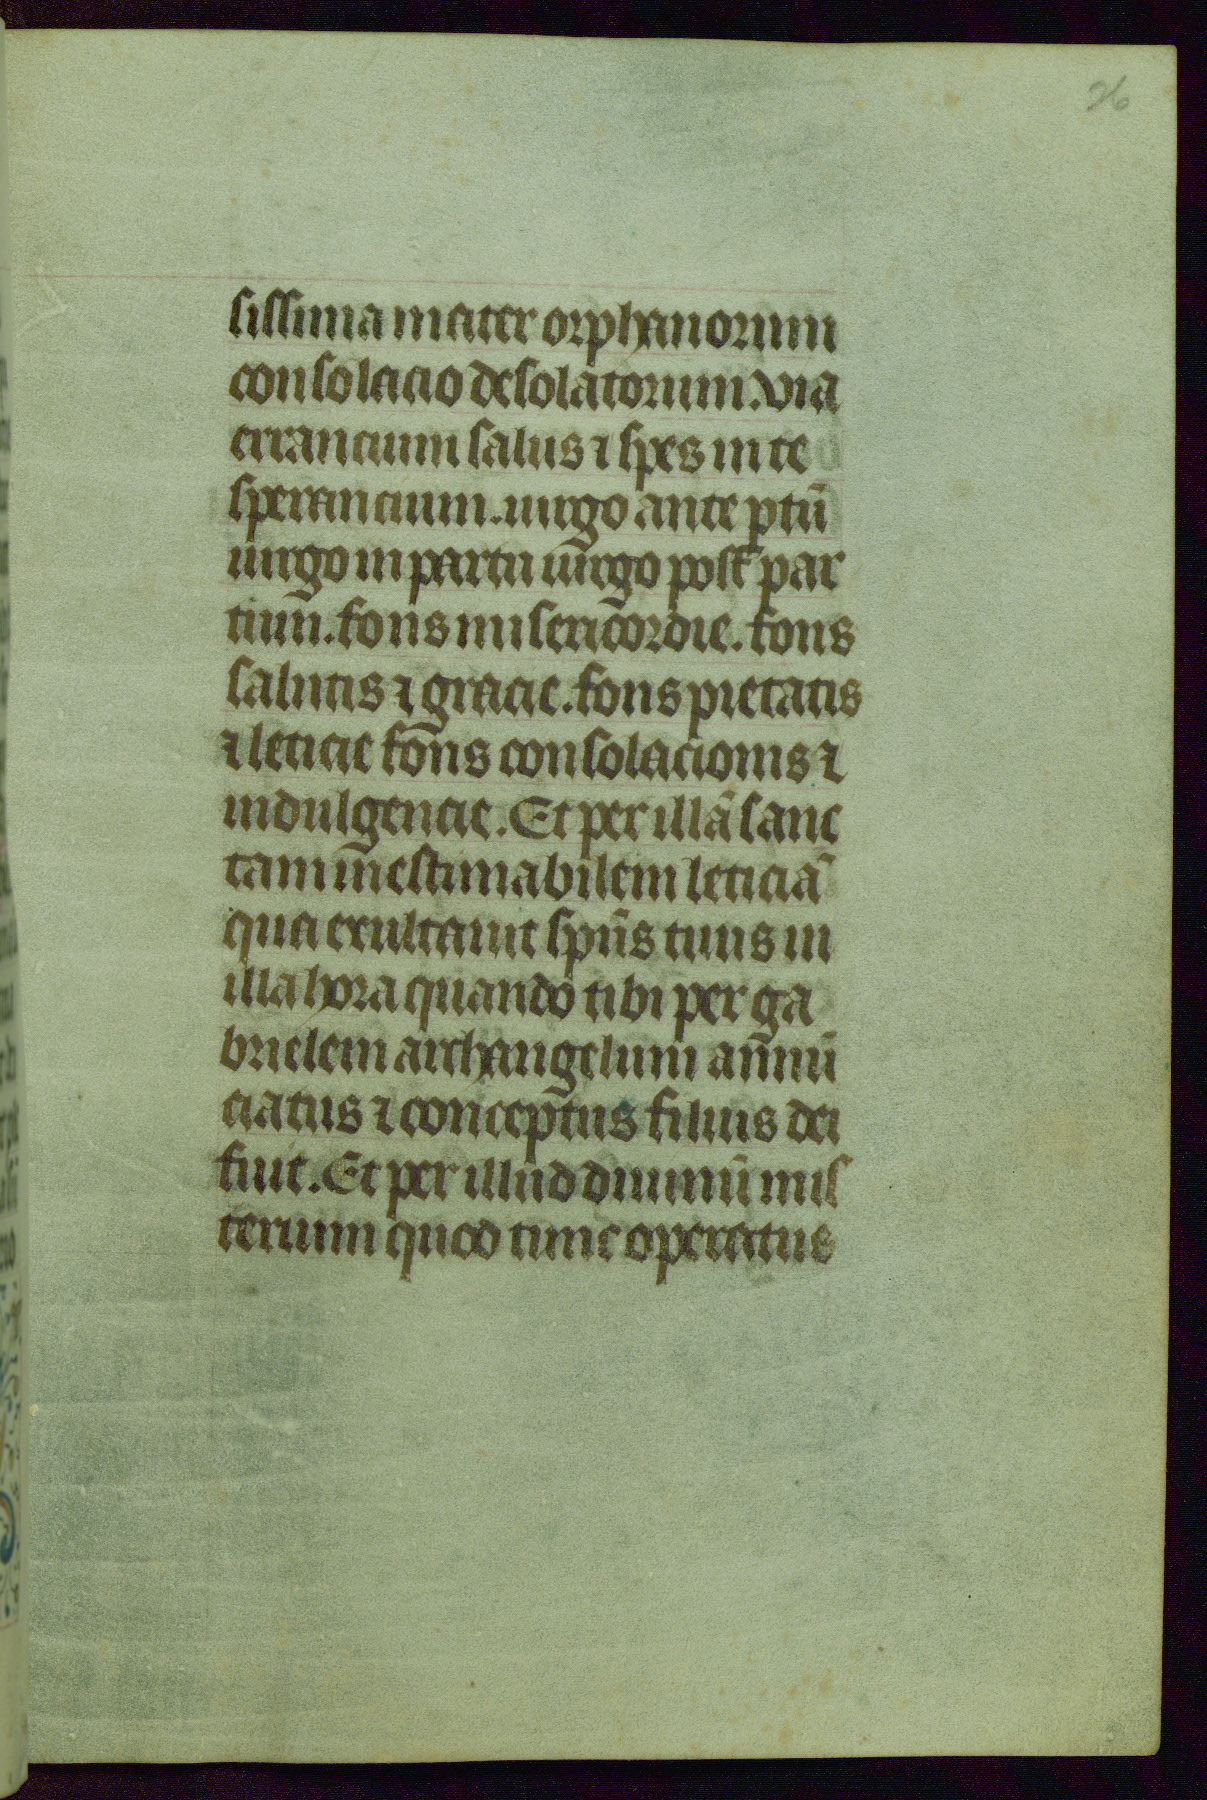 26
sissima mater orphanorum
consolacio desolatorum. via
errancium salus ⁊ spes in te
sperancium. uirgo ante ptū
uirgo in partu uirgo post par
tium. fons misericordie. fons
salutis ⁊ gracie. fons pietatis
⁊ leticie fons consolacionis ⁊
indulgencie. Et per illā sanc
tam inestimabilem leticiā
qua exultauit spūs tuus in
illa hora quando tibi per ga
brielem archangelum annū
ciatus ⁊ conceptus filius dei
fuit. Et per illud diuinū mis
terium quod tunc operatus